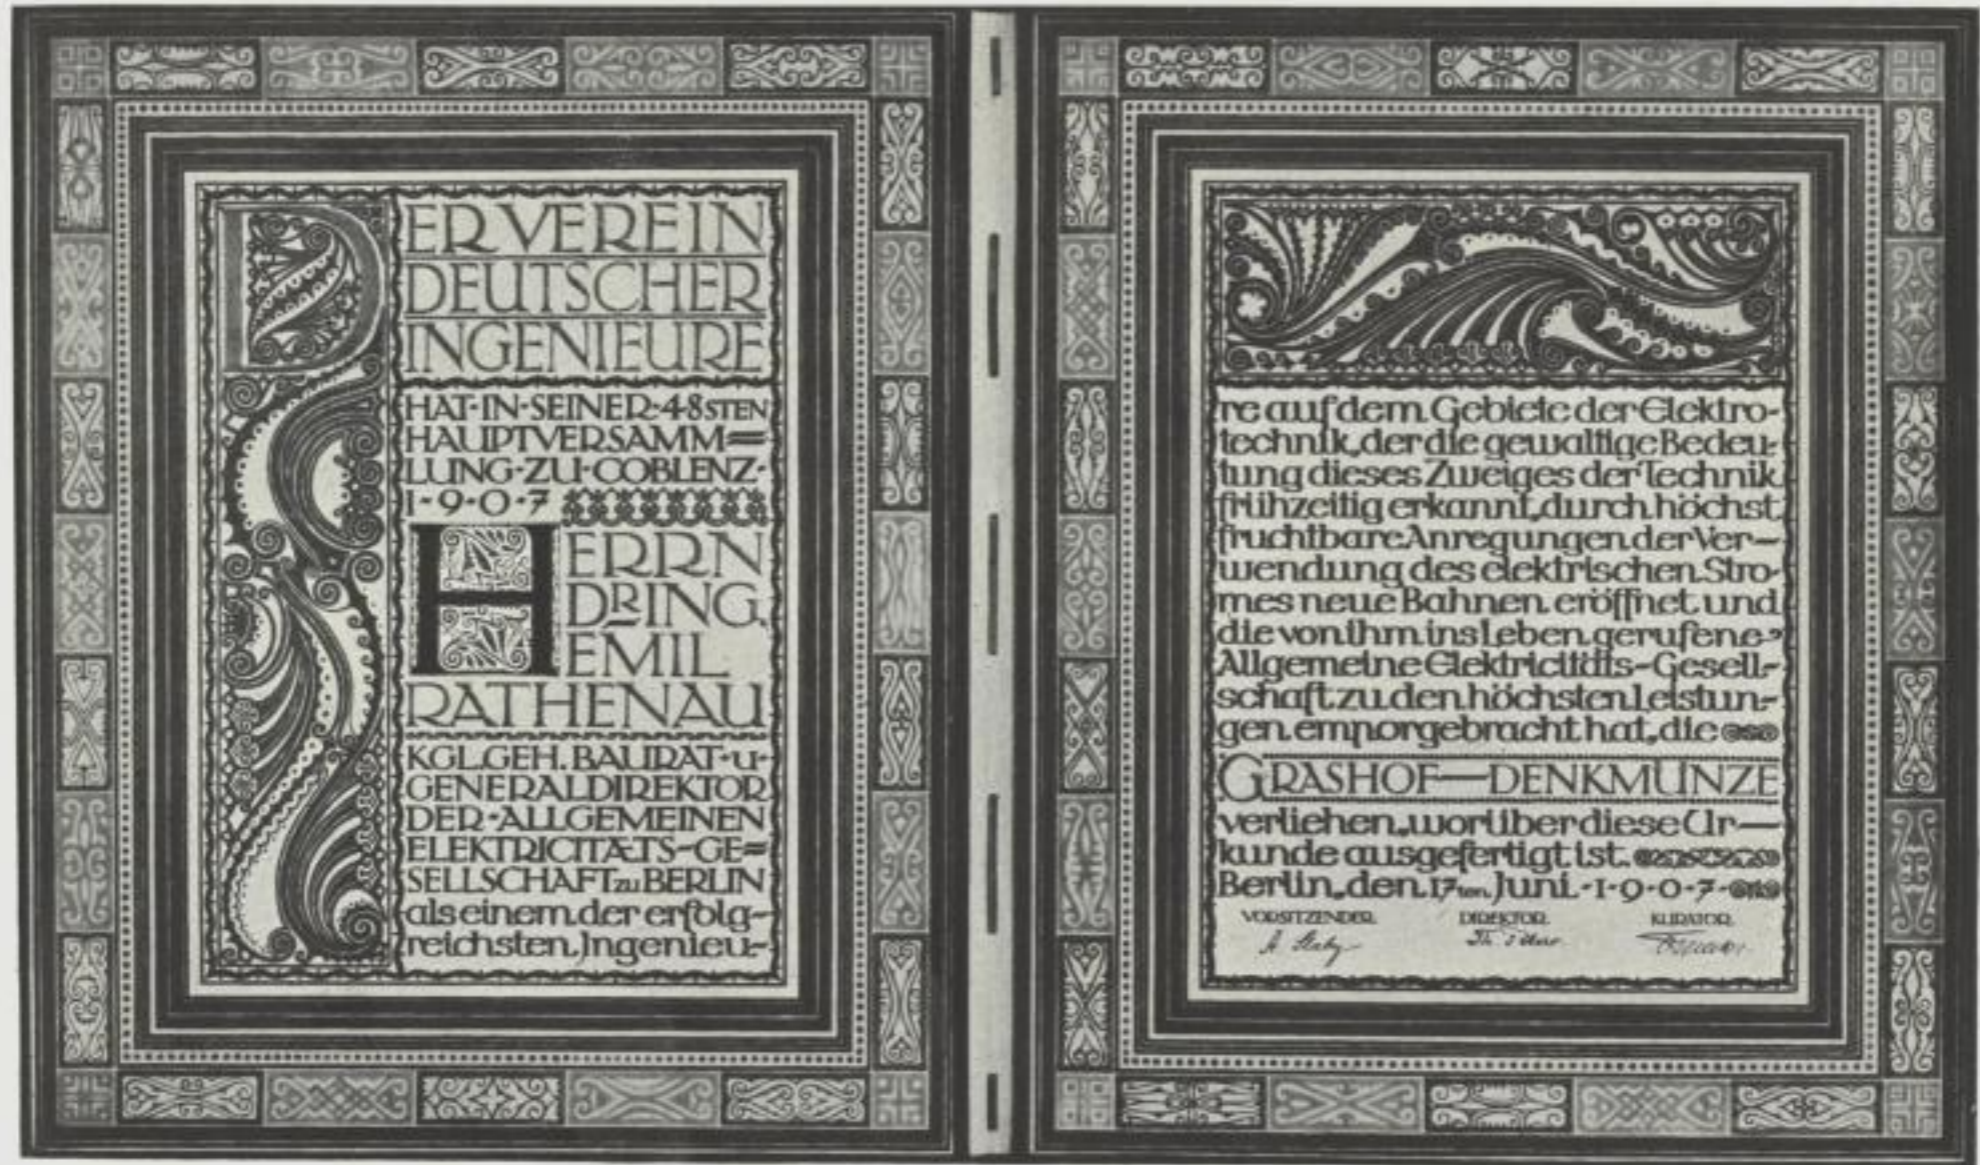 DER VEREIN
DEUTSCHER
INGENIEURE
HAT·IN·SEINER·48STEN
HAUPTVERSAMM=
LUNG·ZU·COBLENZ·
1·9·0·7
HERRN
DR ING.
EMIL
RATHENAU
KGL.GEH. BAURAT·U·
GENERALDIREKTOR
DER·ALLGEMEINEN
ELEKTRICITÆTS-GE=
SELLSCHAFT zu BERLIN
als einem der erfolg-
reichsten Ingenieu-
re auf dem Gebiete der Elektro-
technik, der die gewaltige Bedeu-
tung dieses Zweiges der Technik
frühzeitig erkannt, durch höchst
fruchtbare Anregungen der Ver-
wendung des elektrischen Stro-
mes neue Bahnen eröffnet und
die von ihm ins Leben gerufene
Allgemeine Elektricitäts-Gesell-
schaft zu den höchsten Leistun-
gen emporgebracht hat, die
GRASHOF—DENKMÜNZE
verliehen, worüber diese Ur-
kunde ausgefertigt ist.
Berlin, den 17ten Juni·1·9·0·7·
VORSITZENDER. DIREKTOR. KURATOR.
A Slaby